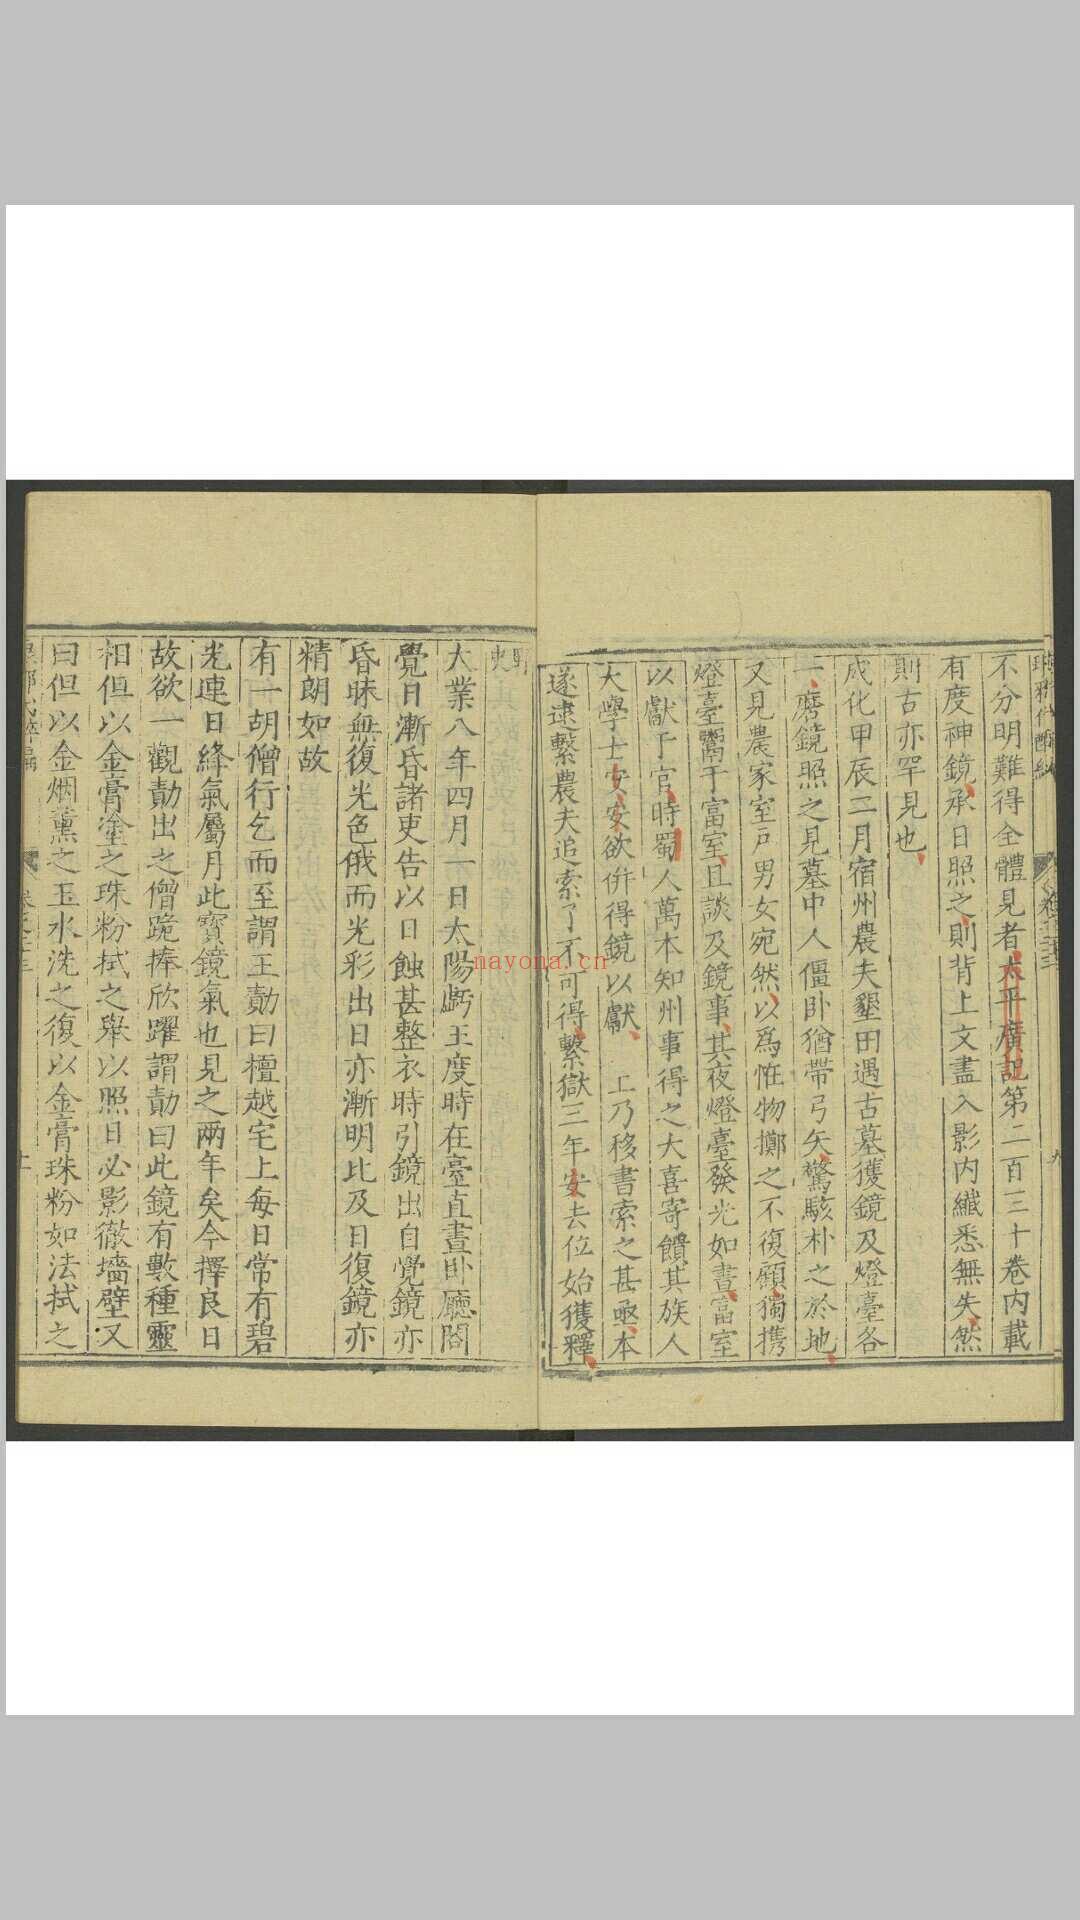 不分明難得全體見者太平廣記第二百三十卷內載
有度神鏡承日照之則背上文盡入影內纖悉無失然
則古亦罕見也
成化甲辰二月宿州農夫墾田遇古墓獲鏡及燈臺各
一磨鏡照之見墓中人僵臥猶帶弓矢驚駭朴之於地
又見農家室戶男女宛然以爲恠物擲之不復顧獨携
燈臺鬻于富室且談及鏡事其夜燈臺發光如晝富室
以獻于官時蜀人萬本知州事得之大喜寄饋其族人
大學士安安欲併得鏡以獻 上乃移書索之甚亟本
遂逮繫農夫追索了不可得繫獄三年安去位始獲釋
野史
大業八年四月一日太陽虧王度時在臺直晝臥廳閣
覺日漸昏諸吏告以日蝕甚整衣時引鏡出自覺鏡亦
昏昧無復光色俄而光彩出日亦漸明比及日復鏡亦
精朗如故
有一胡僧行乞而至謂王勣曰檀越宅上每日常有碧
光連日絳氣屬月此寶鏡氣也見之兩年矣今擇良日
故欲一觀勣出之僧跪捧欣躍謂勣曰此鏡有數種靈
相但以金膏塗之珠粉拭之舉以照日必影徹墻壁又
曰但以金烟薰之玉水洗之復以金膏珠粉如法拭之
nayona.cn